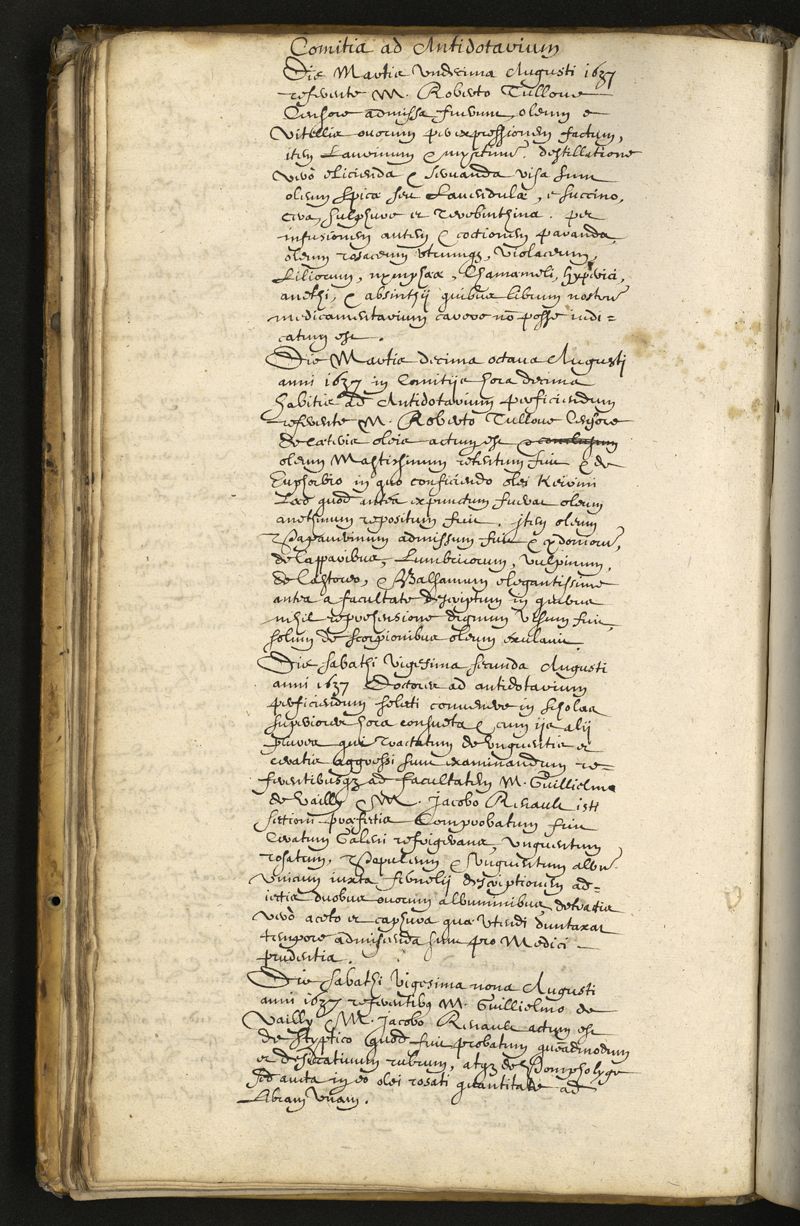 Comitia ad Antidotarium
Die Martis undecima Augusti 1637
referente M. Roberto Tulloue
Censore admissa fuerunt, oleum e
Vitellis ovorum per expressionem factum,
item Laurinum & myrtinū. destillatione
verò elicienda & servanda visa sunt
oleum spicæ seu Lavendulæ, e succino,
cera, sulphure et terebinthina. per
infusionem autem & coctionem paranda,
oleum rosaceum utrumq;, violaceum,
Liliorum, nymphææ, Chamameli, hyperici,
anethi, & absinthij quibus librum nostrū
medicamentarium carere nō posse iudi=
catum est.
Die Martis decima octava Augusti
anni 1637 in Comitijs hora decima
habitis ad Antidotarium perficiendum
referente M. Roberto Tulloue Censore
de cæteris oleis actum est & conclusum
oleum Mastichinum retentum fuit & de
Euphorbio in quo conficiendo olei Keirini
loco quod antea expunctum fuerat oleum
anethinum repositum fuit. item oleum
Papaverinum admissum fuit & cydoniorū,
de Capparibus, Lumbricorum, Vulpinum,
de Castoreo, & Balsamum elegantissime
antea a facultate descriptum in quibus
nihil reprehensione dignum visum fuit,
solum de scorpionibus oleum exulavit.
Die sabathi vigesima secunda Augusti
anni 1637 Doctores ad antidotarium
perficiendum selecti convenere in scholas
superiores hora consueta & cum ijs alij
plures qui tractatum de unguentis et
ceratis aggressi sunt examinandum re=
ferentibusq; ad facultatem M. Guillielmo
de Vailly & M. Jacobo Renault isti
sectioni præfectis Comprobatum fuit
Ceratum Galeni refrigerans, Unguentum
rosatum, Populeum & Unguentum albū.
unicum iuxta fernelij descriptionem ad=
iectis duobus ovorum albuminibus, detractis
verò aceto et caphura quæ utendi duntaxat
tempore admiscenda sunt pro Medici
prudentia.
Die sabathi vigesima nona Augusti
anni 1637 referentibq M. Guillielmo de
Vailly & M. Jacobo Renault actum est
de styptico quod fuit probatum quemadmodum
et desiccativum rubrum, atq; de Pompholyge
sed aucta in eo olei rosati quantitate ad
Libram unam.